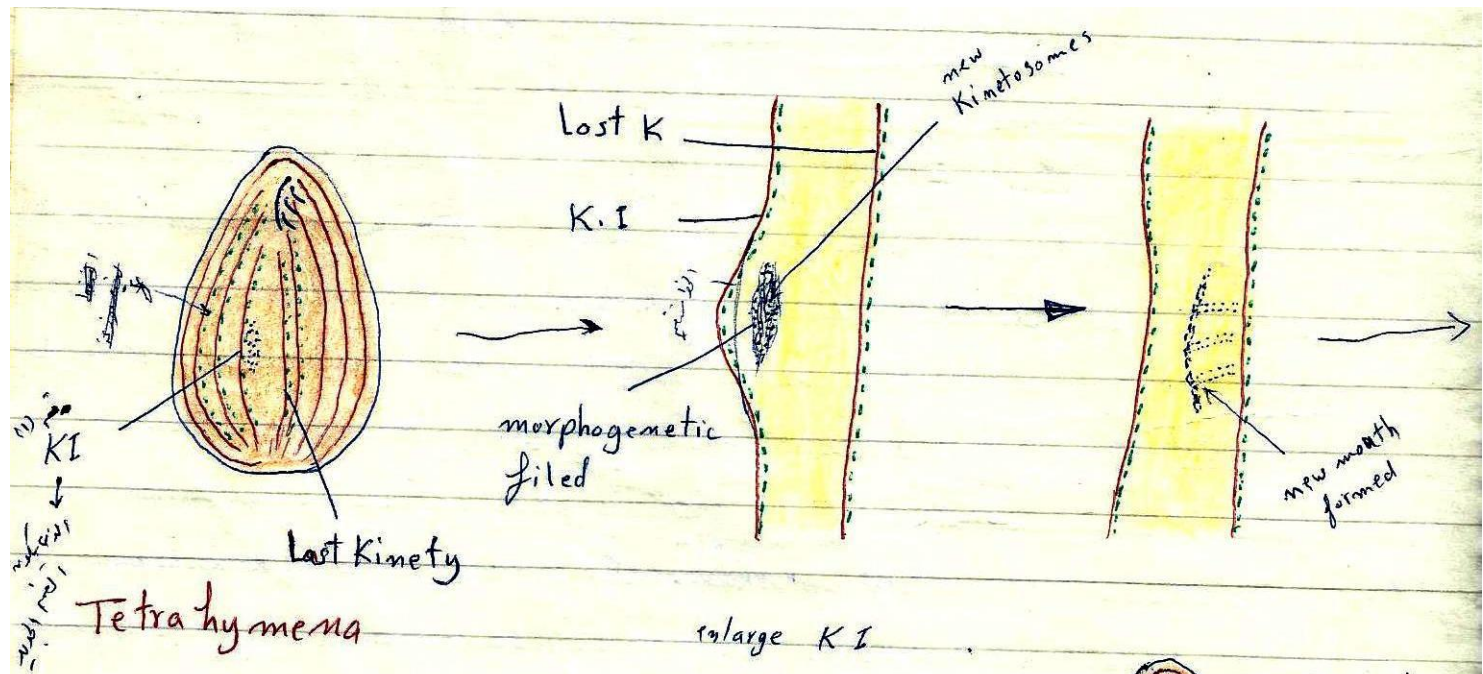 new
Kinetosomes
Lost K
K.I
morphogenetic
filed
new mouth
formed
(1)
KI
Last Kinety
Tetrahymena
enlarge K I